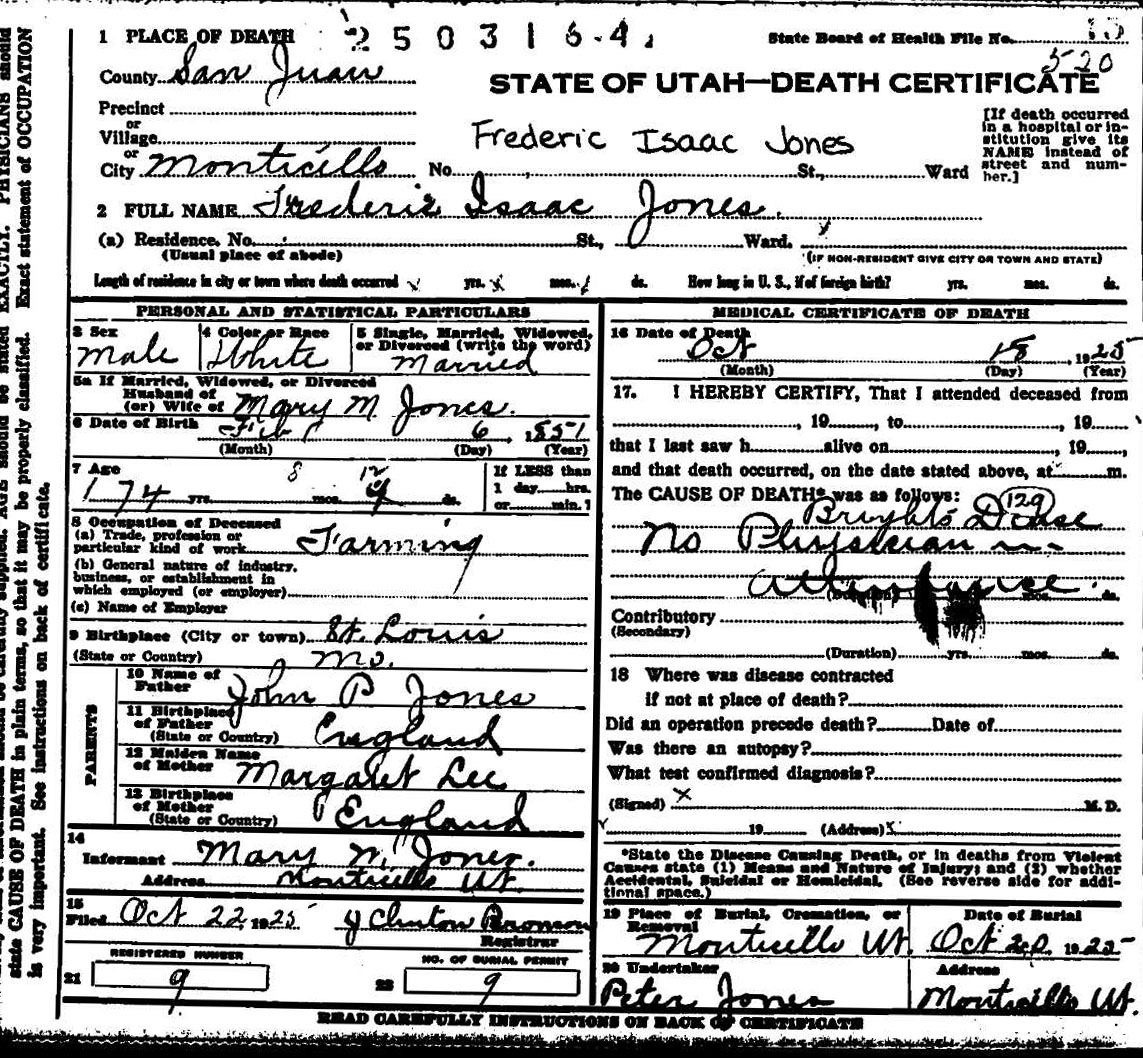 1 PLACE OF DEATH 2503164
State Board of Health File No. 15
520
County San Juan
STATE OF UTAH—DEATH CERTIFICATE
Precinct
or
Village
or
City Monticello No. St., Ward
Frederic Isaac Jones
[If death occurred
in a hospital or in-
stitution give its
NAME instead of
street and num-
ber.]
2 FULL NAME Frederic Isaac Jones.
(a) Residence. No. St., Ward.
(Usual place of abode)
(IF NON-RESIDENT GIVE CITY OR TOWN AND STATE)
Length of residence in city or town where death occurred yrs. mos. ds. How long in U. S., if of foreign birth? yrs. mos. ds.
PERSONAL AND STATISTICAL PARTICULARS
3 Sex
Male
4 Color or Race
White
5 Single, Married, Widowed,
or Divorced (write the word)
Married
5a If Married, Widowed, or Divorced
Husband of
(or) Wife of Mary M Jones.
6 Date of Birth
6, 1851
(Month) (Day) (Year)
7 Age
74 yrs. 8 mos. 12 ds.
If LESS than
1 day hrs.
or min.?
8 Occupation of Deceased
(a) Trade, profession or
particular kind of work Farming
(b) General nature of industry,
business, or establishment in
which employed (or employer)
(c) Name of Employer
9 Birthplace (City or town) St. Louis
(State or Country) Mo.
PARENTS
10 Name of
Father John P Jones
11 Birthplace
of Father
(State or Country) England
12 Maiden Name
of Mother Margaret Lee
13 Birthplace
of Mother
(State or Country) England
14
Informant Mary Jones.
Address Monticello Ut.
15
Filed Oct 22, 1925 J Clinton Bronson
Registrar
REGISTERED NUMBER
21 9
NO. OF BURIAL PERMIT
22 9
MEDICAL CERTIFICATE OF DEATH
16 Date of Death
Oct 18, 1925
(Month) (Day) (Year)
17. I HEREBY CERTIFY, That I attended deceased from
, 19 , to , 19 ,
that I last saw h alive on , 19 ,
and that death occurred, on the date stated above, at m.
The CAUSE OF DEATH* was as follows:
129
Brights
No Physician in
attendance.
Contributory
(Secondary)
(Duration) yrs. mos. ds.
18 Where was disease contracted
if not at place of death?
Did an operation precede death? Date of
Was there an autopsy?
What test confirmed diagnosis?
(Signed) X M. D.
19 (Address) X
*State the Disease Causing Death, or in deaths from Violent
Causes state (1) Means and Nature of Injury; and (2) whether
Accidental, Suicidal or Homicidal. (See reverse side for addi-
tional space.)
19 Place of Burial, Cremation, or
Removal
Monticello Ut.
Date of Burial
Oct 20, 1925
20 Undertaker
Peter Jones
Address
Monticello Ut.
READ CAREFULLY INSTRUCTIONS ON BACK OF CERTIFICATE
AGE should be stated EXACTLY. PHYSICIANS should
state CAUSE OF DEATH in plain terms, so that it may be properly classified. Exact statement of OCCUPATION
is very important. See instructions on back of certificate.